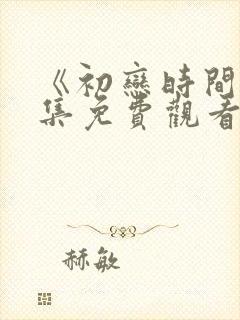 《初戀時間
集免費觀看
赫敏